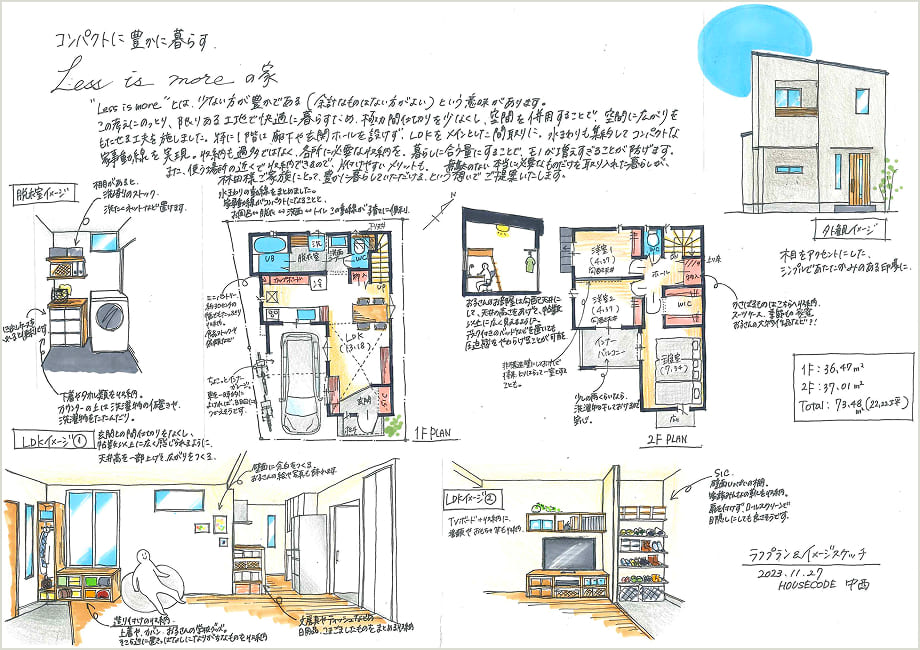 コンパクトに豊かに暮らす.
Less is more の家
"Less is more"とは、少ない方が豊かである(余計なものはない方がよい)という意味があります。
この考えにのっとり、限りある土地で快適に暮らすため、極力間仕切りを少なくし、空間を併用することで、空間に広がりを
もたせる工夫を施しました。特に1階は廊下や玄関ホールを設けず、LDKをメインとした間取りに。水まわりも集約してコンパクトな
家事動線を実現。収納も過多ではなく、各所に必要な収納を、暮らしに合う量にすることで、モノが増えすぎることが防げます。
また、使う場所の近くで収納できるので、片付けやすいメリットも。無駄のない、本当に必要なものだけを取り入れた暮らしが、
林田様ご家族にとって、豊かに暮らしていただける、という想いでご提案いたします。
脱衣室イメージ
棚があると、
洗剤のストック、
洗たくネットなどを置けます。
下着やタオル類を収納。
カウンターの上は洗濯物の仮置きや、
洗濯物をたたんだり。
水まわりの動線をまとめました。
家事動線がコンパクトになることと、
UB
脱衣室
洗
洗面
WC
UP
カップボード
冷
LDK
(13.18)
玄関
SIC
1F PLAN
洋室1
(4.57)
勾配天井
洋室2
(4.57)
勾配天井
WC
ホール
納入
WIC
インナー
バルコニー
主寝室
(7.54)
2F PLAN
外観イメージ
木目をアクセントにした、
シンプルであたたかみのある印象に。
1F: 36.47㎡
2F: 37.01㎡
Total: 73.48㎡ (22.22坪)
LDKイメージ①
玄関との間仕切りをなくし、
帖数以上に広く感じられるように、
天井高を一部上げて広がりをつくる。
壁面に余白をつくる
お子さんの絵や写真も飾れます。
造り付けの収納
上着や、カバン、お子さんの学校グッズ。
文房具やティッシュなどの
日用品、こまごましたものをまとめて収納
LDKイメージ②
TVボード+収納に、
書籍やおもちゃ等も収納。
SIC
壁面いっぱいの棚。
家族みんなの靴を収納。
扉を付けず、ロールスクリーンで
目隠しにしても良さそうです。
ラフプラン&イメージスケッチ
2023.11.27
HOUSECODE 中西